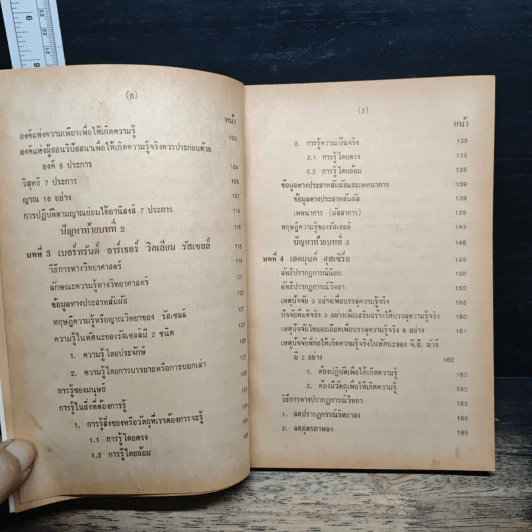 (๖)
หน้า
องค์แห่งความเพียรเพื่อให้เกิดความรู้ 103
องค์แห่งผู้สอนวิปัสสนาเพื่อให้เกิดความรู้จริงควรประกอบด้วย
องค์ 5 ประการ 104
วิสุทธิ 7 ประการ
ญาณ 16 อย่าง
การปฏิบัติตามญาณย่อมได้อานิสงส์ 7 ประการ
ปัญหาท้ายบทที่ 2
บทที่ 3 เบอร์ทรันด์ อาร์เธอร์ วิลเลี่ยม รัสเซลล์
วิธีการทางวิทยาศาสตร์
ลักษณะความรู้ทางวิทยาศาสตร์
ข้อมูลทางประสาทสัมผัส
ทฤษฎีความรู้หรือญาณวิทยาของ รัสเซลล์
ความรู้ในทัศนะของรัสเซลมี 2 ชนิด
1. ความรู้โดยประจักษ์
2. ความรู้โดยการบรรยายหรือการบอกเล่า
การรู้ของมนุษย์
การรู้ในสิ่งที่ต้องการรู้
1. การรู้สิ่งของหรือวัตถุที่เราต้องการจะรู้
1.1 การรู้โดยตรง
1.2 การรู้โดยอ้อม
(๗)
หน้า
2. การรู้ความเป็นจริง 135
2.1 การรู้โดยตรง
2.2 การรู้โดยอ้อม
ข้อมูลทางประสาทสัมผัสและเพทนาการ 139
ข้อมูลทางประสาทสัมผัส 139
เพทนาการ (ผัสสาการ) 139
ทฤษฎีความรู้ของรัสเซลล์
ปัญหาท้ายบทที่ 3 146
บทที่ 4 เอดมุนด์ ฮุสเซิร์ล
ลัทธิปรากฏการณ์นิยม 150
ลัทธิปรากฏการณ์วิทยา
เหตุปัจจัย 3 อย่างเพื่อบรรลุความรู้จริง
ปัจจัยที่แท้จริง 3 อย่างเพื่อเสริมสร้างให้บรรลุความรู้จริง 160
เหตุปัจจัยโดยละเอียดเพื่อบรรลุความรู้จริง 6 อย่าง 161
เหตุปัจจัยที่ก่อให้เกิดความรู้จริงในทัศนะของ จี.อี. มัวร์
มี 2 อย่าง 162
1. ต้องปฏิบัติเพื่อให้เกิดความรู้ 162
2. ต้องมีวัตถุเพื่อให้เกิดความรู้ 162
วิธีการทางปรากฏการณ์วิทยา 165
1. ลดปรากฏการณ์วิทยาลง 165
2. ลดอุตรภาพลง 165